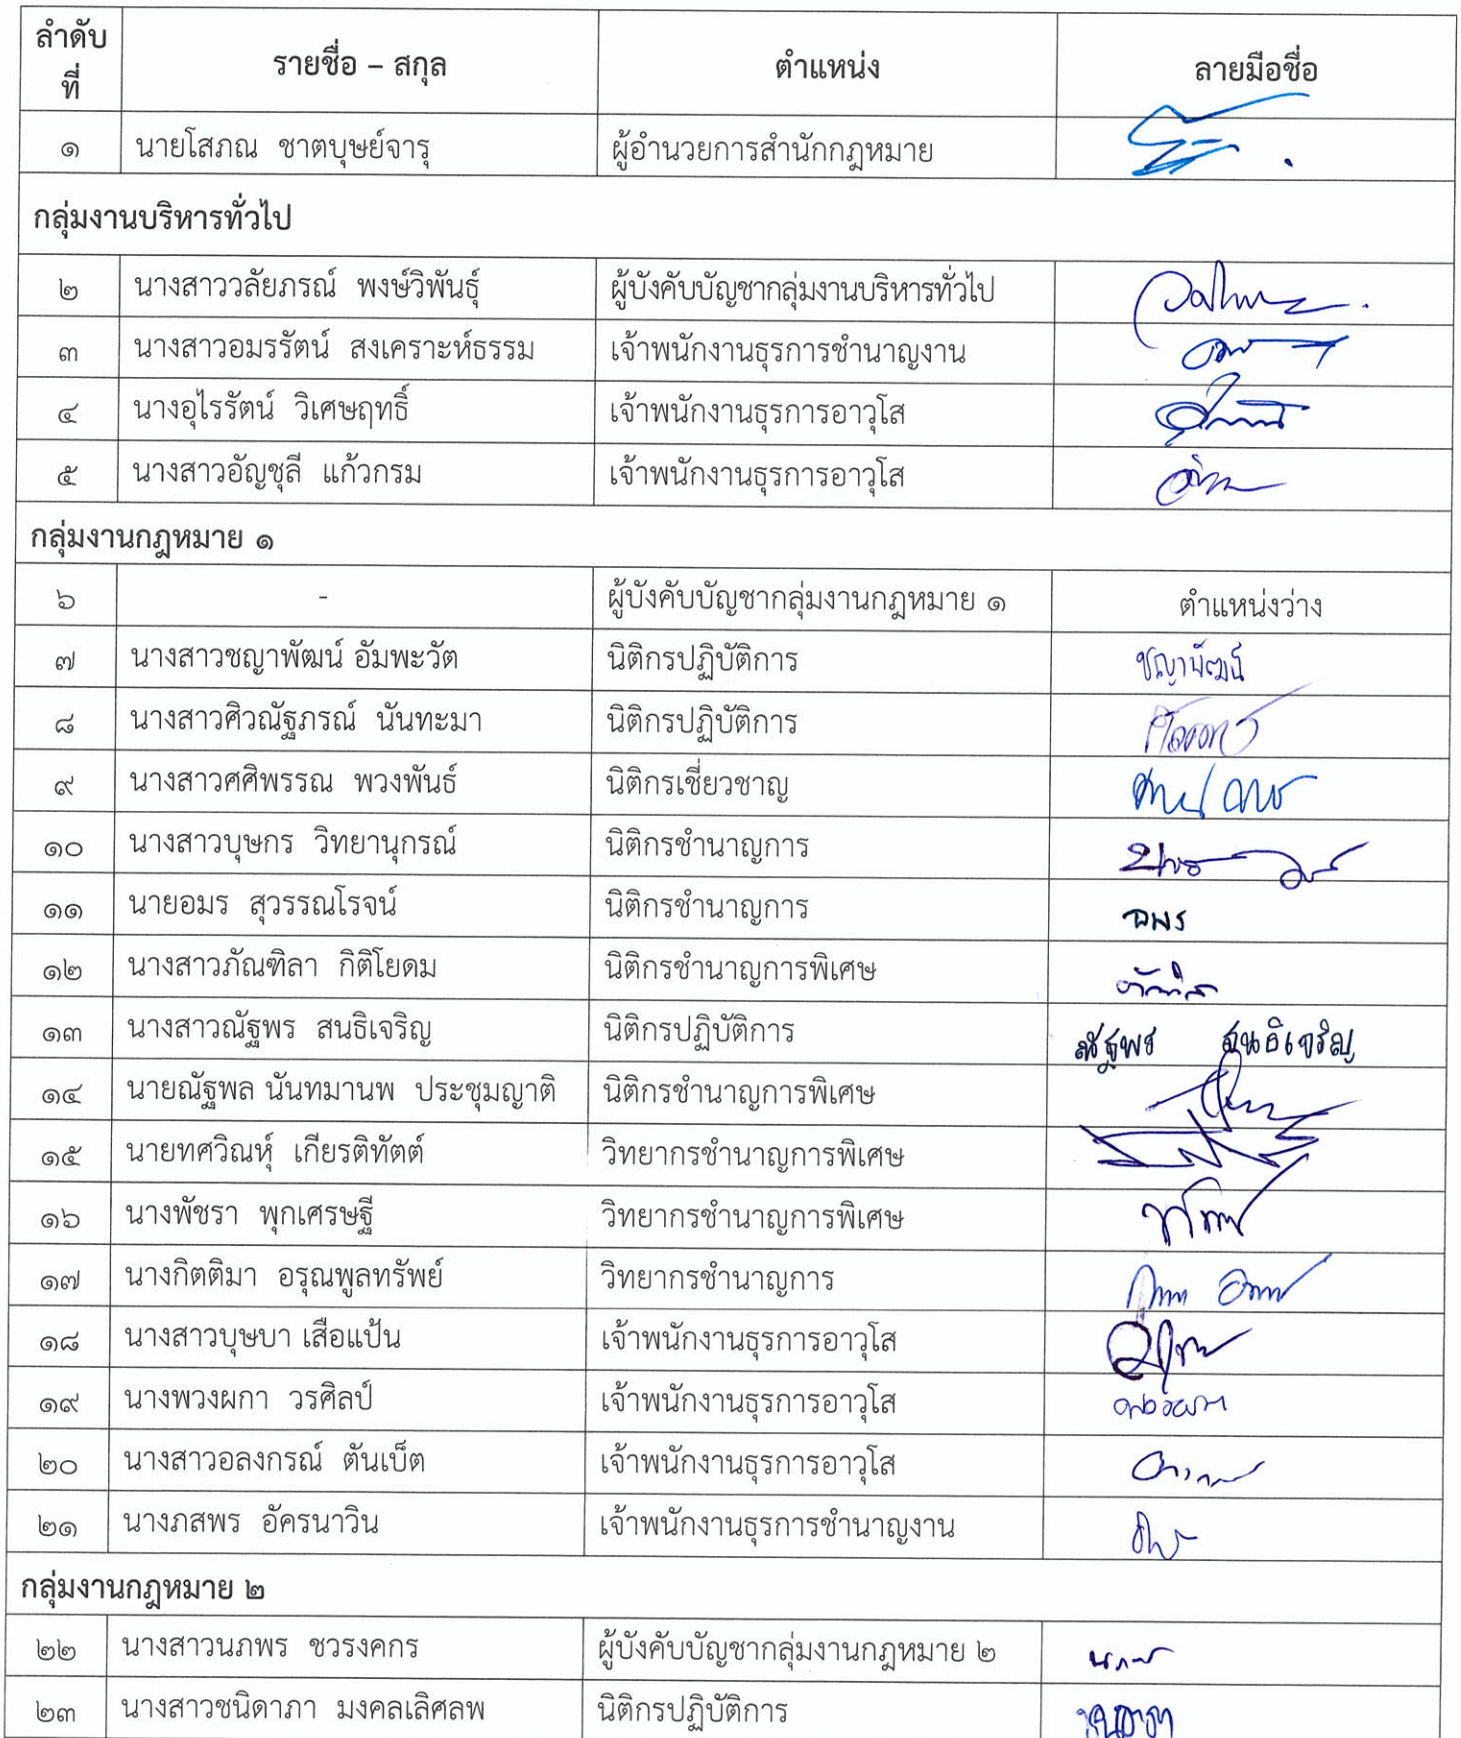 ลำดับที่ รายชื่อ – สกุล ตำแหน่ง ลายมือชื่อ
๑ นายโสภณ ชาตบุษย์จารุ ผู้อำนวยการสำนักกฎหมาย
กลุ่มงานบริหารทั่วไป
๒ นางสาววลัยภรณ์ พงษ์วิพันธุ์ ผู้บังคับบัญชากลุ่มงานบริหารทั่วไป
๓ นางสาวอมรรัตน์ สงเคราะห์ธรรม เจ้าพนักงานธุรการชำนาญงาน
๔ นางอุไรรัตน์ วิเศษฤทธิ์ เจ้าพนักงานธุรการอาวุโส
๕ นางสาวอัญชุลี แก้วกรม เจ้าพนักงานธุรการอาวุโส
กลุ่มงานกฎหมาย ๑
๖ - ผู้บังคับบัญชากลุ่มงานกฎหมาย ๑ ตำแหน่งว่าง
๗ นางสาวชญาพัฒน์ อัมพะวัต นิติกรปฏิบัติการ ชญาพัฒน์
๘ นางสาวศิวณัฐภรณ์ นันทะมา นิติกรปฏิบัติการ
๙ นางสาวศศิพรรณ พวงพันธ์ นิติกรเชี่ยวชาญ
๑๐ นางสาวบุษกร วิทยานุกรณ์ นิติกรชำนาญการ
๑๑ นายอมร สุวรรณโรจน์ นิติกรชำนาญการ อมร
๑๒ นางสาวภัณฑิลา กิติโยดม นิติกรชำนาญการพิเศษ
๑๓ นางสาวณัฐพร สนธิเจริญ นิติกรปฏิบัติการ ณัฐพร สนธิเจริญ
๑๔ นายณัฐพล นันทมานพ ประชุมญาติ นิติกรชำนาญการพิเศษ
๑๕ นายทศวิณหุ์ เกียรติทัตต์ วิทยากรชำนาญการพิเศษ
๑๖ นางพัชรา พุกเศรษฐี วิทยากรชำนาญการพิเศษ
๑๗ นางกิตติมา อรุณพูลทรัพย์ วิทยากรชำนาญการ
๑๘ นางสาวบุษบา เสือแป้น เจ้าพนักงานธุรการอาวุโส
๑๙ นางพวงผกา วรศิลป์ เจ้าพนักงานธุรการอาวุโส
๒๐ นางสาวอลงกรณ์ ตันเบ็ต เจ้าพนักงานธุรการอาวุโส
๒๑ นางภสพร อัครนาวิน เจ้าพนักงานธุรการชำนาญงาน
กลุ่มงานกฎหมาย ๒
๒๒ นางสาวนภพร ชวรงคกร ผู้บังคับบัญชากลุ่มงานกฎหมาย ๒
๒๓ นางสาวชนิดาภา มงคลเลิศลพ นิติกรปฏิบัติการ